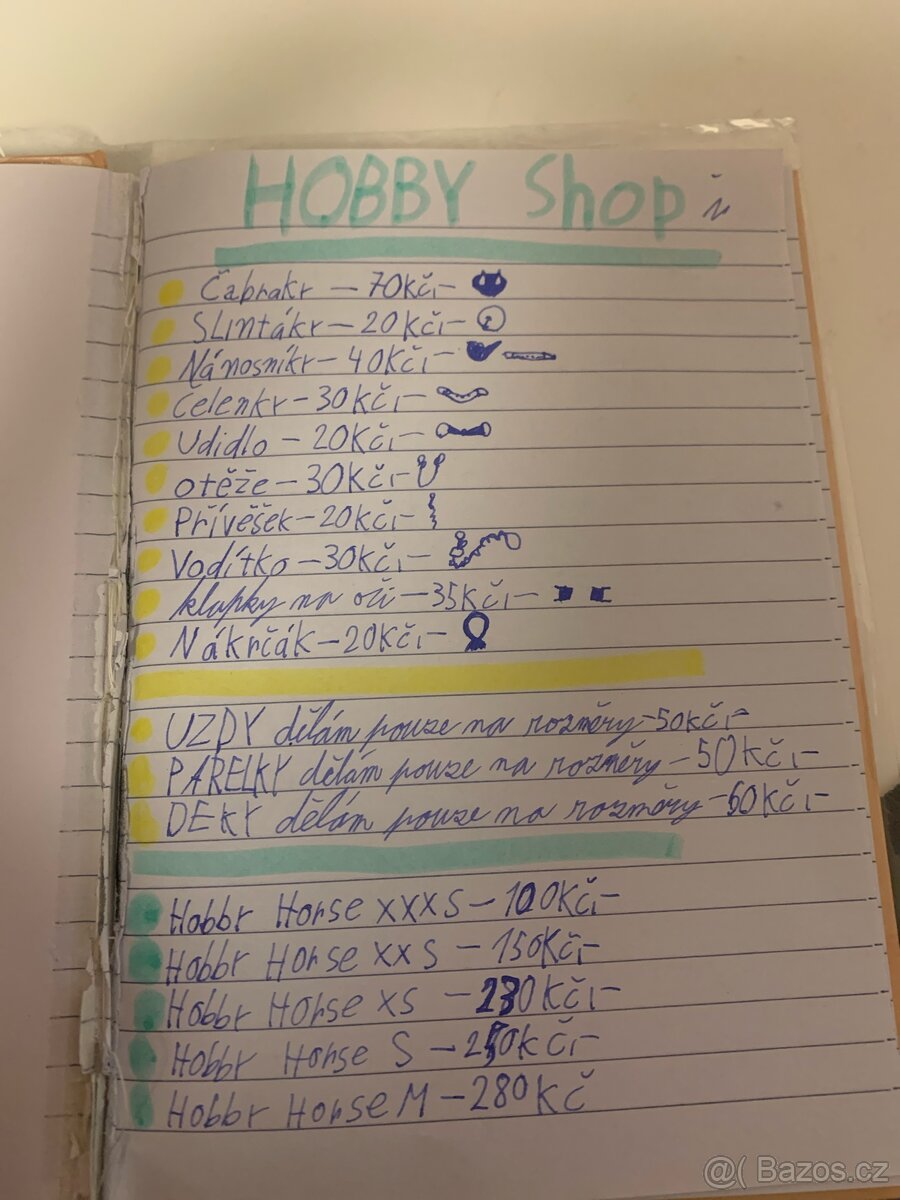 HOBBY Shop
Čabraky – 70Kč,–
SLINtÁky – 20Kč,–
Nánosníky – 40Kč,–
čelenky – 30Kč,–
Udidlo – 20Kč,–
otěže – 30Kč,–
Přívěšek – 20Kč,–
Vodítko – 30Kč,–
klapky na oči – 35Kč,–
Nákrčák – 20Kč,–
UZDY dělám pouze na rozměry – 50Kč,–
PARELKY dělám pouze na rozměry – 50Kč,–
DEKY dělám pouze na rozměry – 60Kč,–
Hobby Horse XXXS – 100Kč,–
Hobby Horse XXS – 150Kč,–
Hobby Horse XS – 230Kč,–
Hobby Horse S – 250Kč,–
Hobby Horse M – 280Kč
@( Bazos.cz